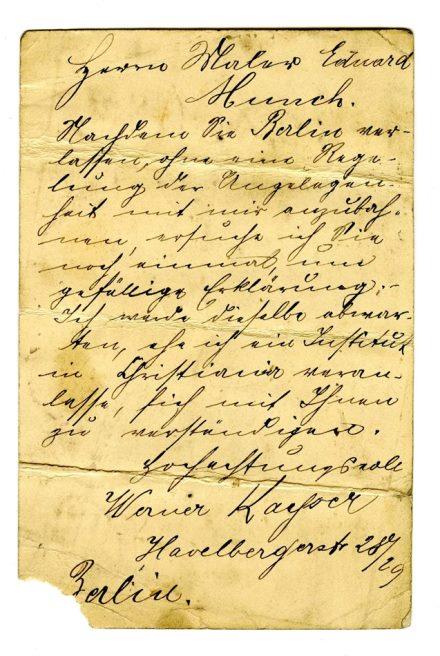 Herrn Maler Eduard
Munch.
Nachdem Sie Berlin ver-
lassen, ohne eine Rege-
lung der Angelegen-
heit mit mir anzubah-
nen, ersuche ich Sie
noch einmal um
gefällige Erklärung. -
Ich werde dieselbe abwar-
ten, ehe ich ein Institut
in Christiania veran-
lasse, sich mit Ihnen
zu verständigen.
Hochachtungsvoll
Werner
Havelbergerstr 28/29
Berlin.